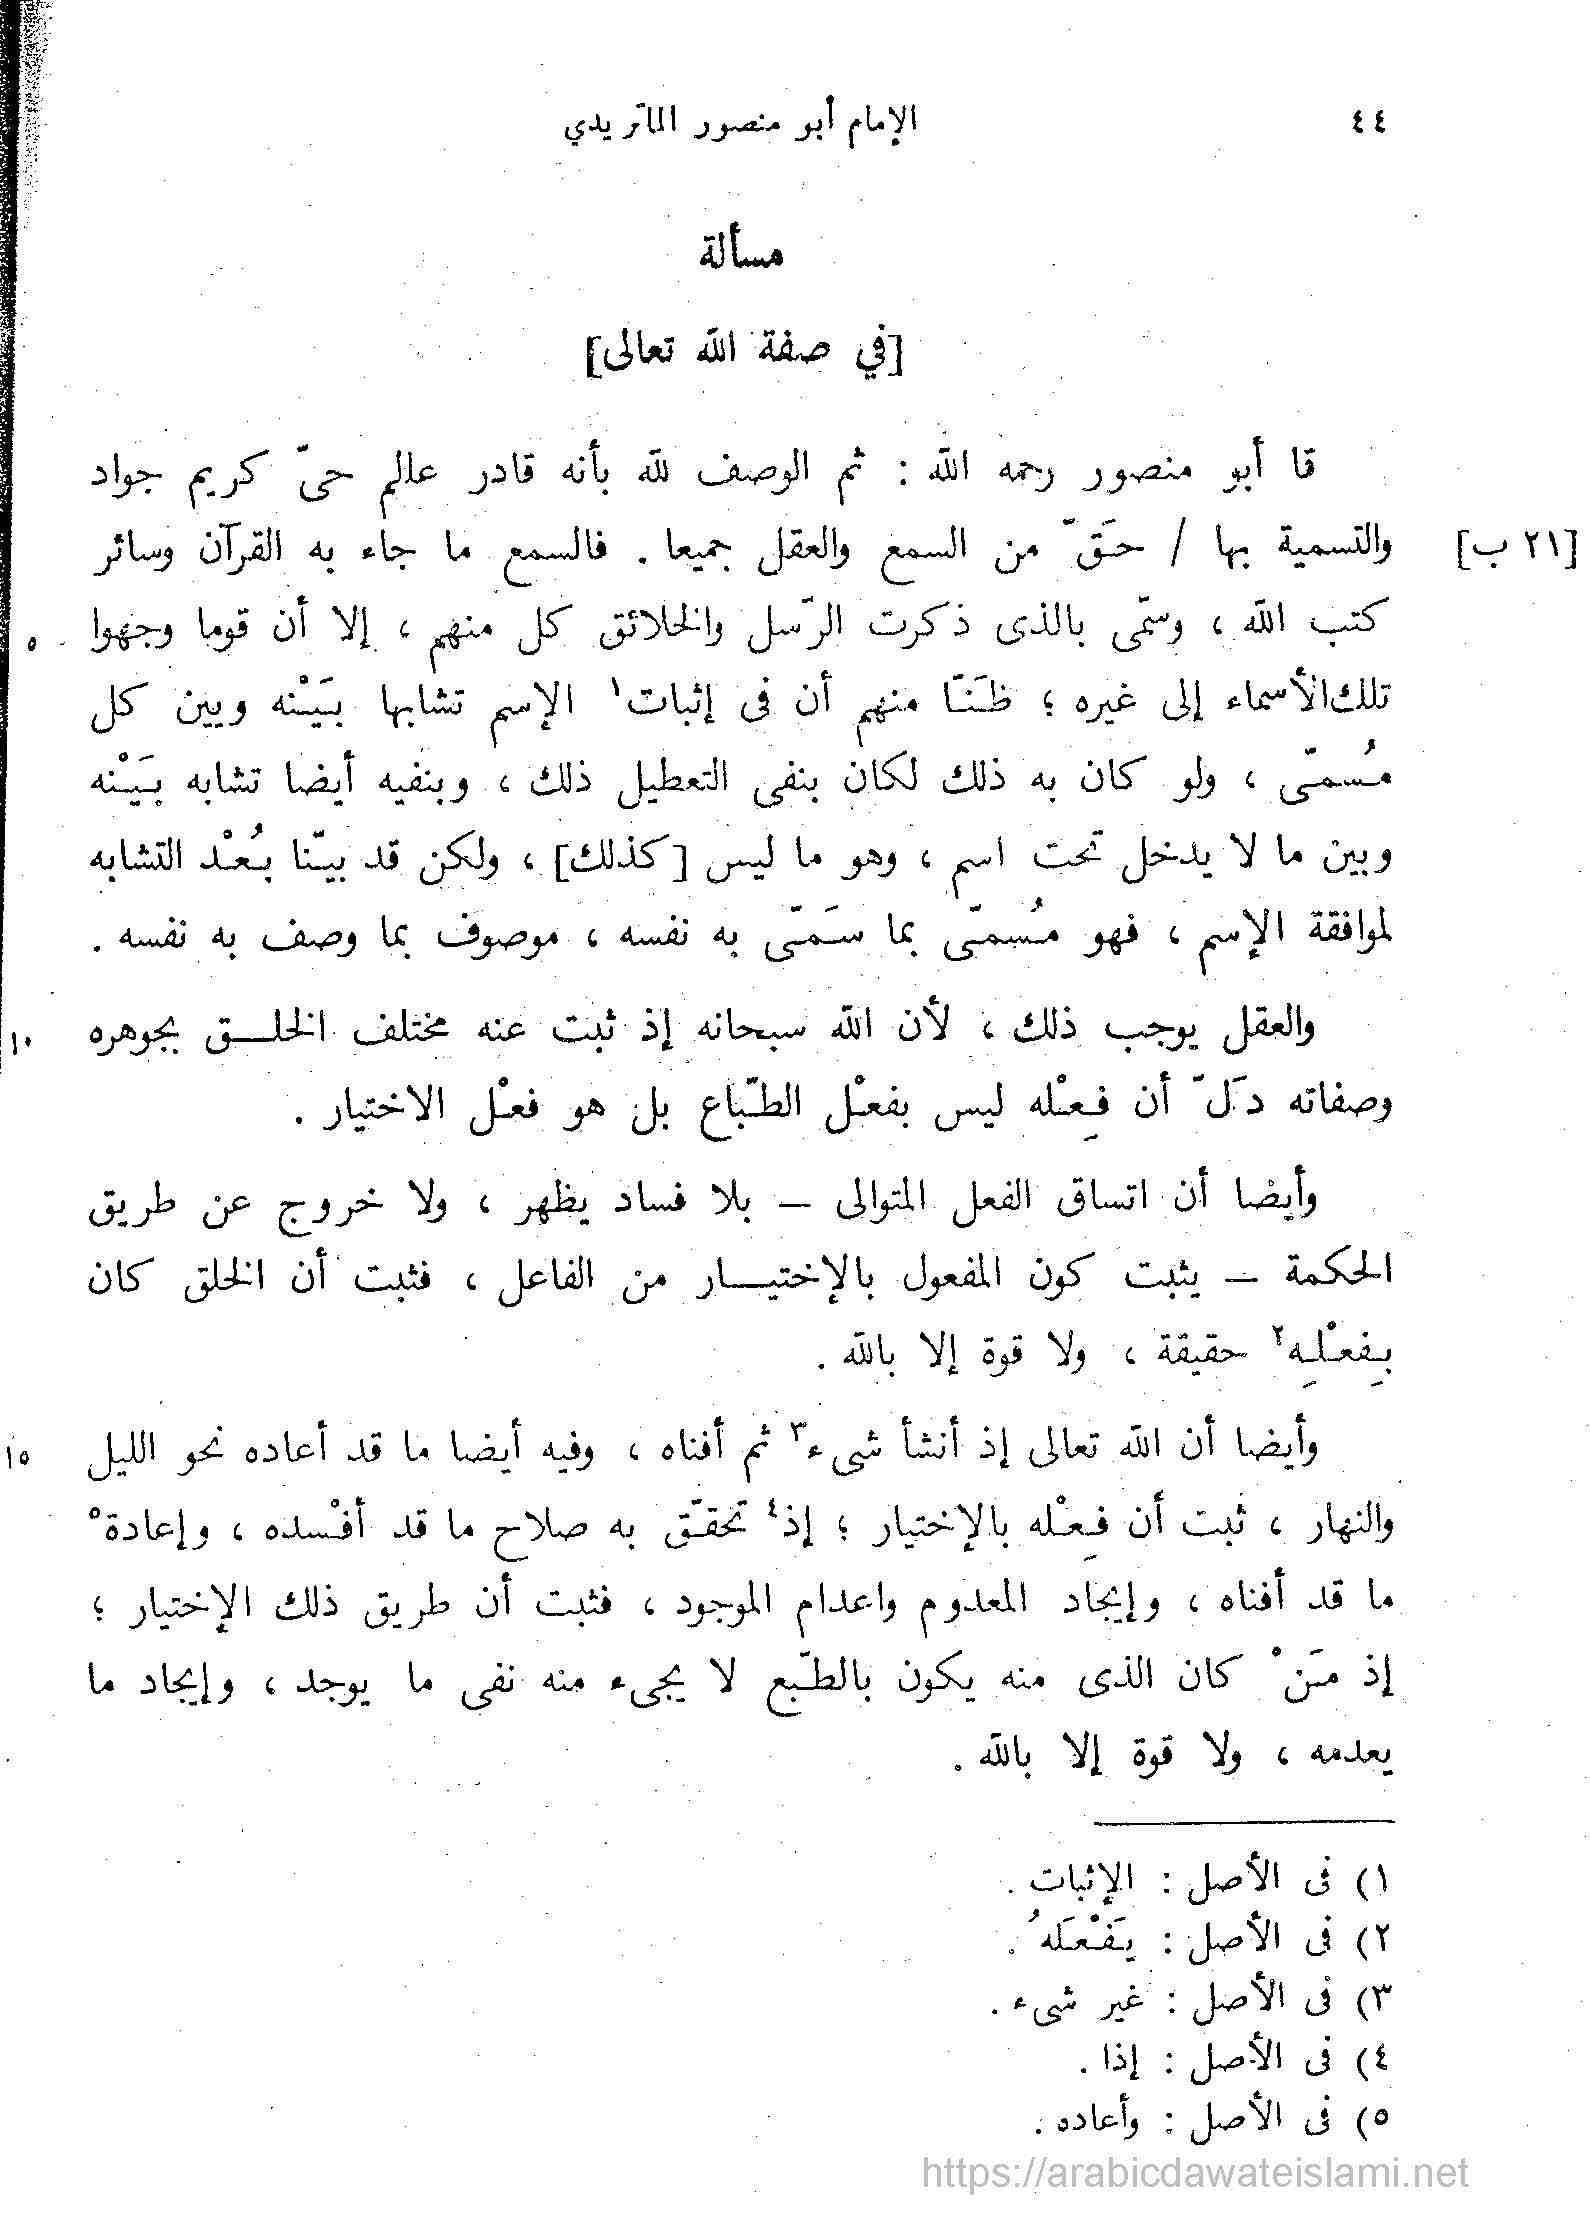 ٤٤
الإمام أبو منصور الماتريدي
مسألة
[في صفة الله تعالى]
قا أبو منصور رحمه الله : ثم الوصف لله بأنه قادر عالم حىّ كريم جواد
[٢١ ب] والتسمية بها / حَقّ من السمع والعقل جميعا . فالسمع ما جاء به القرآن وسائر
كتب الله ، وسمّى بالذى ذكرت الرّسل والخلائق كل منهم ، إلا أن قوما وجهوا ٥
تلك الأسماء إلى غيره ؛ ظَنًّا منهم أن فى إثبات١ الإسم تشابها بَيْنه وبين كل
مُسمّى ، ولو كان به ذلك لكان بنفى التعطيل ذلك ، وبنفيه أيضا تشابه بَيْنه
وبين ما لا يدخل تحت اسم ، وهو ما ليس [كذلك] ، ولكن قد بيّنا بُعْد التشابه
لموافقة الإسم ، فهو مُسمّى بما سَمّى به نفسه ، موصوف بما وصف به نفسه .
والعقل يوجب ذلك ، لأن الله سبحانه إذ ثبت عنه مختلف الخلق بجوهره ١٠
وصفاته دَلّ أن فِعْله ليس بفعْل الطّباع بل هو فعْل الاختيار .
وأيضا أن اتساق الفعل المتوالى – بلا فساد يظهر ، ولا خروج عن طريق
الحكمة – يثبت كون المفعول بالإختيار من الفاعل ، فثبت أن الخلق كان
بِفعْلِه٢ حقيقة ، ولا قوة إلا بالله .
وأيضا أن الله تعالى إذ أنشأ شىء٣ ثم أفناه ، وفيه أيضا ما قد أعاده نحو الليل ١٥
والنهار ، ثبت أن فِعْله بالإختيار ؛ إذ٤ تحقّق به صلاح ما قد أفْسده ، وإعادة٥
ما قد أفناه ، وإيجاد المعدوم واعدام الموجود ، فثبت أن طريق ذلك الإختيار ؛
إذ مَنْ كان الذى منه يكون بالطّبع لا يجىء منه نفى ما يوجد ، وإيجاد ما
يعدمه ، ولا قوة إلا بالله .
١) فى الأصل : الإثبات .
٢) فى الأصل : يَفْعَلهُ .
٣) فى الأصل : غير شىء .
٤) فى الأصل : إذا .
٥) فى الأصل : وأعاده .
https://arabicdawateislami.net